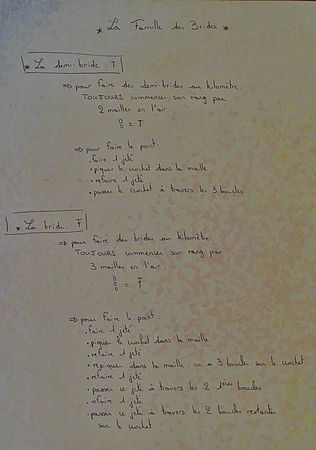 * La Famille des Brides *
* La demi-bride : T
⇒ pour faire des demi-brides au kilomètre :
TOUJOURS commencer son rang par
2 mailles en l'air
8 = T
⇒ pour faire le point :
• faire 1 jeté
• piquer le crochet dans la maille
• refaire 1 jeté
• passer le crochet à travers les 3 boucles
* La bride : Ŧ
⇒ pour faire des brides au kilomètre
TOUJOURS commencer son rang par
3 mailles en l'air
= Ŧ
⇒ pour faire le point :
• faire 1 jeté
• piquer le crochet dans la maille
• refaire 1 jeté
• repiquer dans la maille : on a 3 boucles sur le crochet
• refaire 1 jeté
• passer ce jeté à travers les 2 1ères boucles
• refaire 1 jeté
• passer ce jeté à travers les 2 boucles restantes
sur le crochet